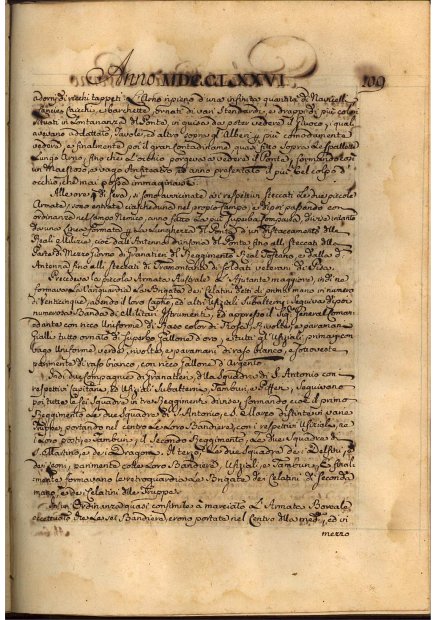 Anno MDCCLXXVI. 109
adorni di vecchi tappeti: L'Arno ripieno d'una infinita quantità di Navicelli
e Barchette ornati di vari Stendardi, e drappi di più colori
situati in lontananza del Ponte, in guisa da poter vedere il giuoco; i quali
avevano adattato Tavole, ed altro sopra gli Alberi per più comodamente
vedere; e finalmente poi il gran Contadiname quasi fitto sopra le Spallette
Lungo Arno, fin che l'occhio porgeva a vedere il Ponte, formandolo si
un Maestoso, e vago Anfiteatro ed anno presentato il più bel colpo d'
occhio, che mai possa immaginarsi.
Alle ore di sera, si sono avvicinate ai respettivi steccati le due piccole
Armate, sono entrate ciascheduna nel proprio Campo, e dipoi passando con
ordinanza nel Campo Nemico, anno fatto la più superba comparsa, divise intanto
da una Linea formata per la lunghezza del Ponte d'un distaccamento delle
Reali Milizie, cioè dall'Antenna di mezzo del Ponte fino alli steccati della
Parte di Mezzo Giorno di Granatieri del Reggimento Real Toscana, e dalla d.
Antenna fino alli steccati di Tramontana di Soldati veterani di Pisa.
Precedeva la piccola Armata Australe L'Ajutante maggiore, indi ne
formava la Vanguardia la Brigata dei Celatini detti di in numero
di Venticinque, avendo il loro Capitano, ed altri Ufiziali Subalterni: Seguiva di poi
numerosa Banda di Militari Strumenti, ed appresso il Sig. General Coman
dante con ricco Uniforme di Raso color di Rose, Rivolte, e paramani
Gialli tutto ornato di superbo Gallone d'oro, e tutti gli Ufiziali, primarj con
vago Uniforme verde, rivolte, e paramani di raso bianco, e sottoveste
parimente di raso bianco, con ricco Gallone d'Argento.
Indi due Compagnie di Granatieri, della Squadra di S. Antonio con
respettivi Capitani, ed Ufiziali Subalterni, Tamburi, e Pifferi, seguivano
poi tutte le sei Squadre in tre Reggimenti divise, formando cioè il primo
Reggimento le due Squadre di S. Antonio, e S. Marco distinte in varie
portando nel centro le loro Bandiere, con i respettivi Ufiziali, ne
i loro posti, e Tamburi; il Secondo Reggimento, le due Squadre di
S. Martino, e dei Dragoni. Il terzo, le due Squadre dei Delfini, e
dei Leoni, parimente colle loro Bandiere, Ufiziali, e Tamburi; E final
mente formavano la retroguardia le Brigate dei Celatini di seconda
mano, e dei Celatini delle Truppe.
In un Ordinanza quasi consimile à marciato l'Armata Boreale
eccettuato che le sei Bandiere erono portate nel Centro della med. ed in
mezzo